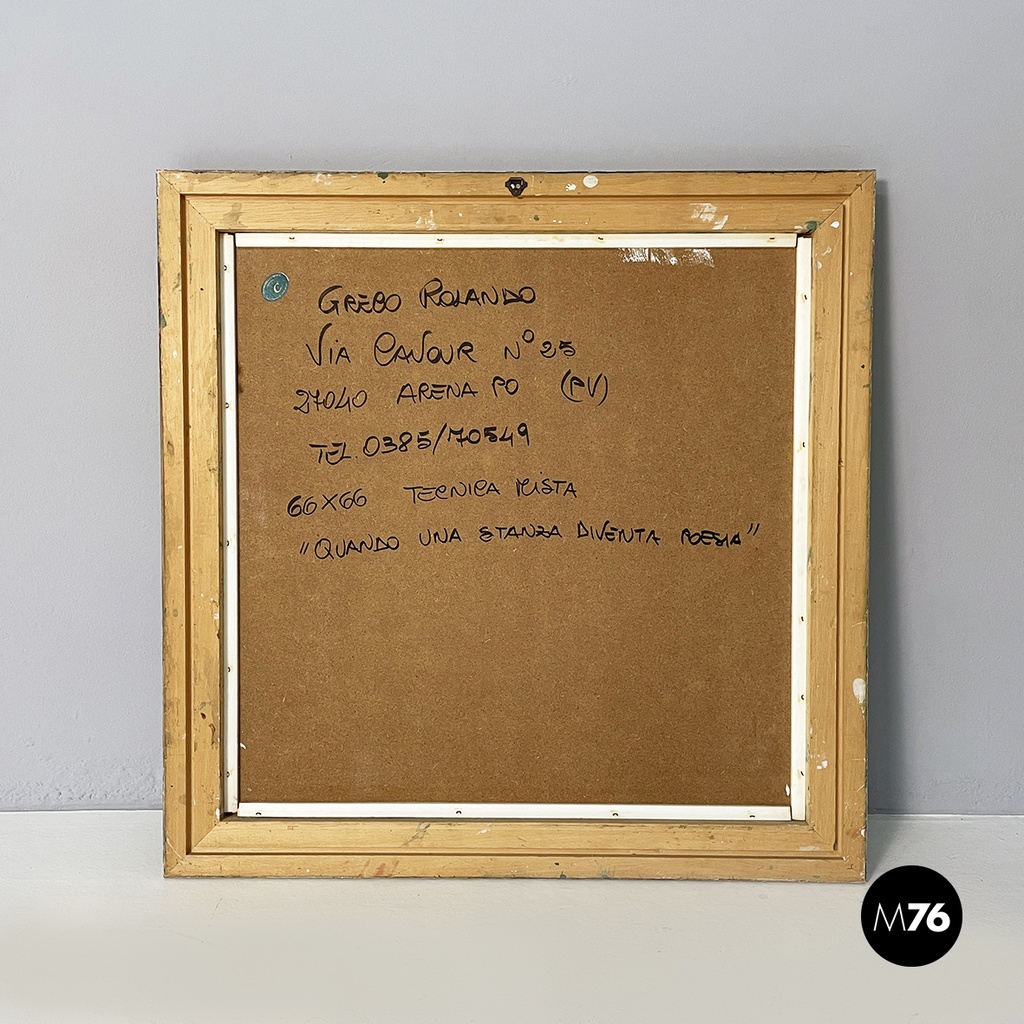 GRECO ROLANDO
VIA CAVOUR N° 25
27040 ARENA PO (PV)
TEL. 0385/70549
66X66 TECNICA MISTA
"QUANDO UNA STANZA DIVENTA POESIA"
M76